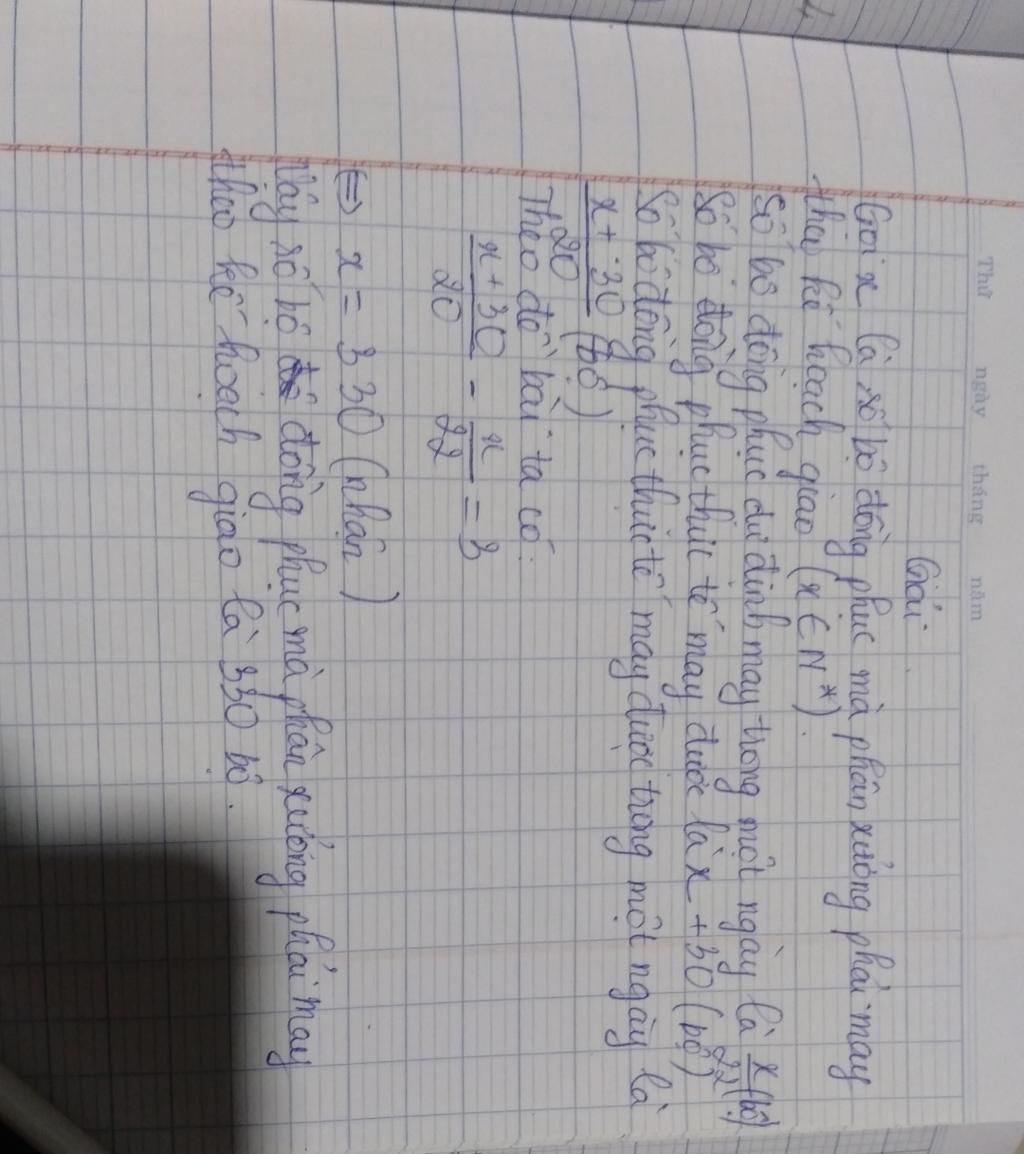 Thứ ngày tháng năm
Giải
Gọi x là số bộ đồng phục mà phân xưởng phải may
theo kế hoạch giao (x ∈ N*).
Số bộ đồng phục dự định may trong một ngày là x/22 (bộ)
Số bộ đồng phục thực tế may được là x + 30 (bộ)
Số bộ đồng phục thực tế may được trong một ngày là
(x + 30)/20 (bộ)
Theo đề bài ta có:
(x + 30)/20 - x/22 = 3
⇔ x = 330 (nhận)
Vậy số bộ đồng phục mà phân xưởng phải may
theo kế hoạch giao là 330 bộ.